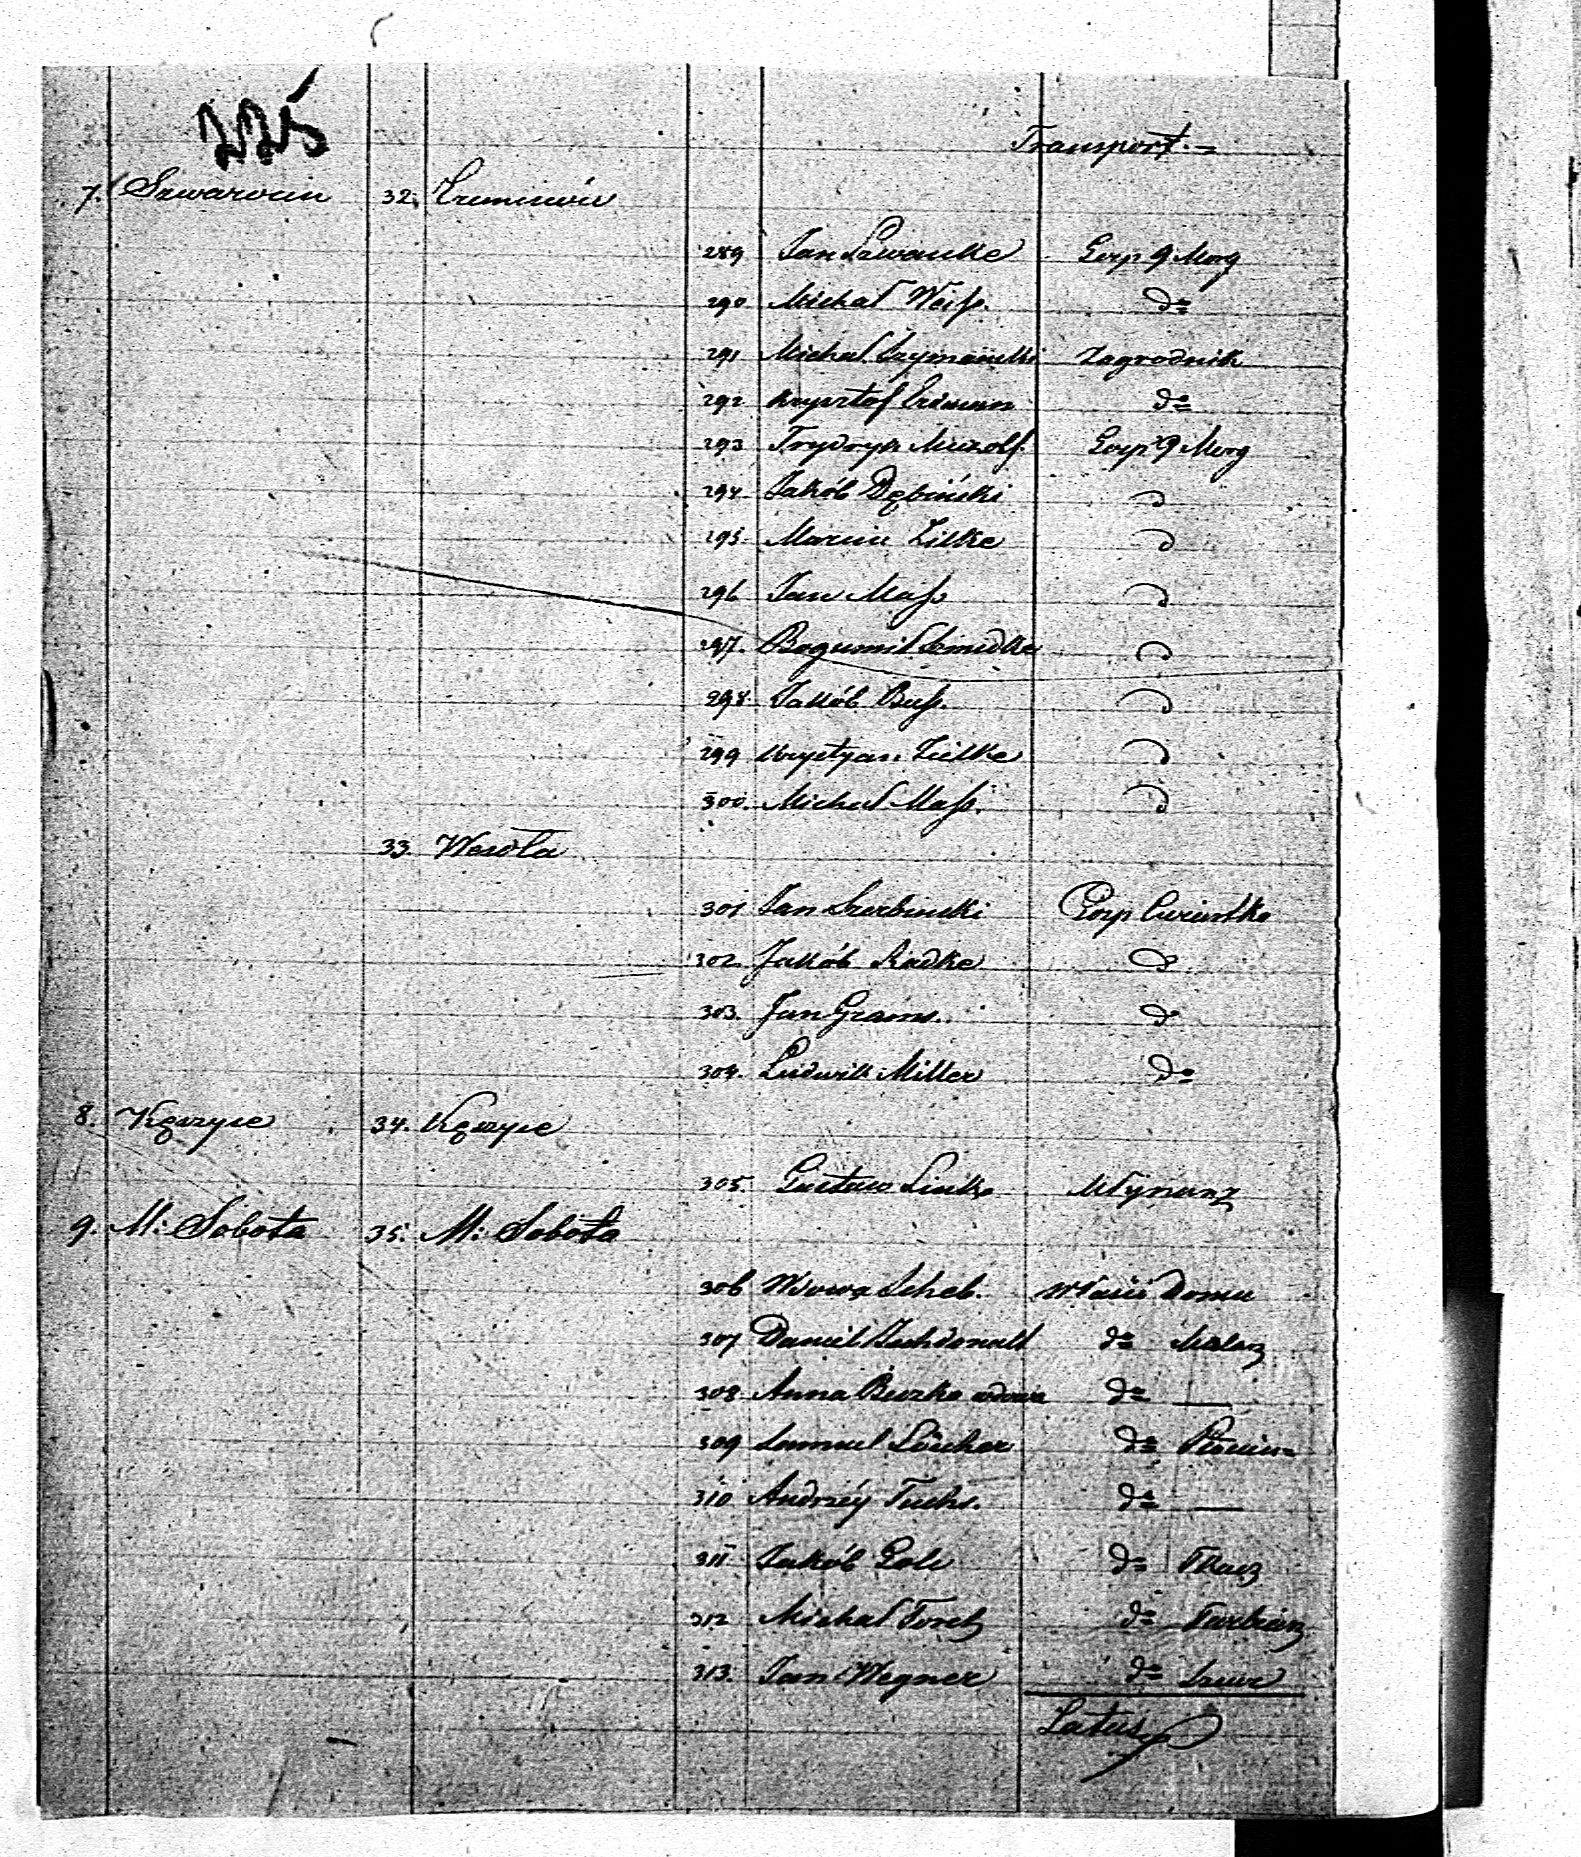 225
Transport =
7. Szwarocin 32. Czerniwiu
289 Jan Lewancke Gosp 9 Morg
290 Michał Weiss. do
291 Michał Szymański Zagrodnik
292 Krysztof Erdman do
293 Frydryk Muzolf. Gosp 9 Morg
294 Jakób Dębiński d
295. Marcin Zilke d
296 Jan Mass d
297. Bogumił Szmidke d
298. Jakób Buss. d
299 Krystyan Zielke d
300. Michał Mass. d
33. Wesoła
301 Jan Szerbinski Gosp Cwiartko
302. Jakób Radke d
303. Jan Grams. d
304. Ludwik Miller do
8. Kęszyce 34. Kęszyce
305. Gustaw Linke Młynarz
9. M: Sobota 35. M: Sobota
306 Wdowa Scheb. Właści Domu
307 Daniel do Malarz
308. Anna Buzke wdowa do —
309 Samuel do
310 Andrzéy Fuchs. do —
311 Jakób Gole do Tkacz
312 Michał Toretz do Farbiarz
313. Jan Wegner do Szewc
Latus